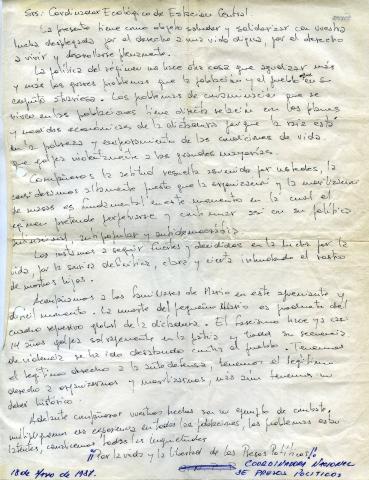 Srs: Coordinador Ecológico de Estación Central
La presente tiene como objeto saludar y solidarizar con vuestra
lucha desplegada por el derecho a una vida digna, por el derecho
a vivir y desarrollarse plenamente.
La política del régimen no hace otra cosa que agudizar más
y más los graves problemas que la población y el pueblo en su
conjunto atraviesa. Los problemas de contaminación que se
viven en las poblaciones tiene directa relación con los planes
y medidas económicas de la dictadura porque la raíz está
en la pobreza y empeoramiento de las condiciones de vida
que golpea violentamente a las grandes mayorías.
Compañeros la actitud resuelta asumida por ustedes, la
consideramos altamente puesto que la organización y la movilización
de masas es fundamental en este momento en la cual el
régimen pretende perpetuarse y continuar así con su política
antipopular y antidemocrática
Los instamos a seguir fuertes y decididos en la lucha por la
vida, por la justicia definitiva, clara y cierta
de muchos hijos.
Acompañamos a los familiares de Mario en este apremiante y
difícil momento. La muerte del pequeño Mario es producto del
cuadro represivo global de la dictadura. El fascismo hace ya casi
14 años golpea salvajemente en la patria y toda su secuencia
de violencia se ha ido desatando contra el pueblo. Tenemos
el legítimo derecho a la autodefensa, tenemos el legítimo
derecho a organizarnos y movilizarnos, más aún tenemos un
deber histórico.
Adelante compañeros vuestros hechos son un ejemplo de combate,
multipliquemos esa experiencia en todas las poblaciones, los problemas están
latentes, canalicemos todas las inquietudes.
¡¡Por la vida y la libertad de los Presos Políticos!!
COORDINADORA NACIONAL
DE PRESOS POLITICOS
18 de Mayo de 1987.